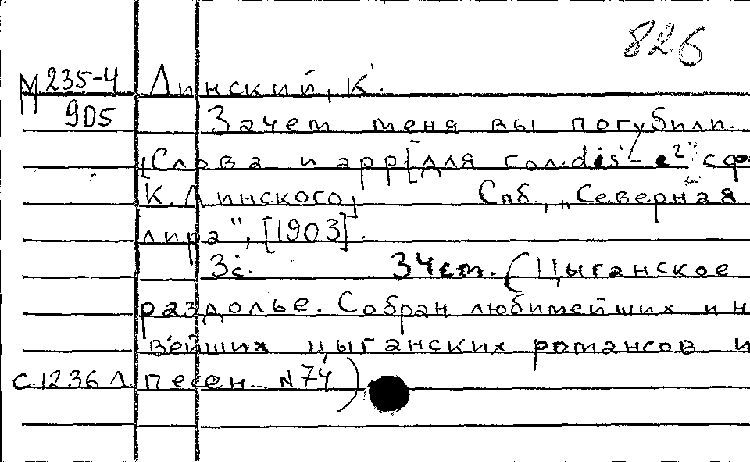 826
М 235-4 Линский, К.
905 Зачем меня вы погубили.
[Слова и арр[для гол. dis'- e² с ф
К. Линского] Спб., "Северная
лира", [1903].
3с. 34 см. (Цыганское
раздолье. Собран любимейших и н
вейших цыганских романсов и
С1236Л песен. N74)